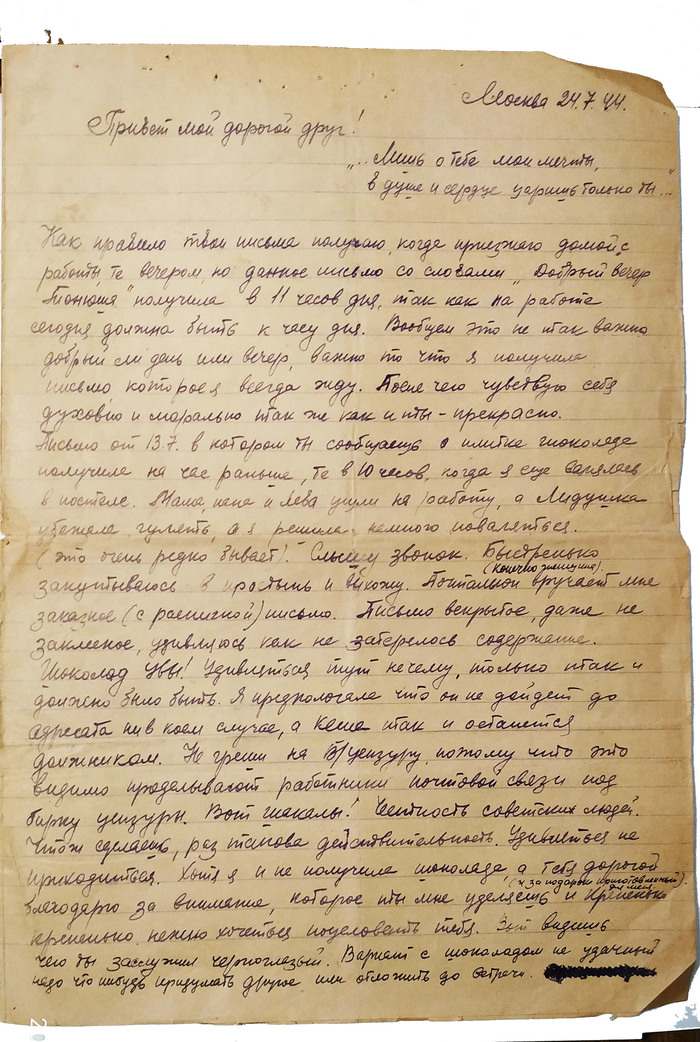 Москва 24.7.44.
Привет мой дорогой друг!
"..Лишь о тебе мои мечты,
в душе и сердце царишь только ты..."
Как правило твои письма получаю, когда приезжаю домой с
работы, те вечером, но данное письмо со словами "Добрый вечер
Тонюша" получила в 11 часов дня, так как на работе
сегодня должна быть к часу дня. Вообщем это не так важно
добрый ли день или вечер, важно то что я получила
письмо, которое я всегда жду. После чего чувствую себя
духовно и морально так же как и ты - прекрасно.
Письмо от 13.7. в котором ты сообщаешь о плитке шоколада
получила на час раньше, те в 10 часов, когда я еще валялась
в постеле. Мама, папа и Лева ушли на работу, а Лидушка
убежала гулять, а я решила немного поваляться.
(это очень редко бывает). Слышу звонок. Быстренько
(конечно женщина).
закутываюсь в простынь и выхожу. Почтальон вручает мне
заказное (с распиской) письмо. Письмо вскрытое, даже не
заклееное, удивляюсь как не затерялось содержание.
Шоколад увы! Удивляться тут нечему, только так и
должно было быть. Я предпологала что он не дойдет до
адресата ни в коем случае, а Кеша так и останется
должником. Не греши на В/цензуру, потому что это
видимо проделывают работники почтовой связи под
бирку цензуры. Вот шакалы! Честность советских людей.
Чтож сделаешь, раз такова действительность. Удивляться не
приходиться. Хотя я и не получила шоколада, а тебя дорогой
(х за подарок приготовленный
для меня).
благодарю за внимание, которое ты мне уделяешь и крепенько
крепенько, нежно хочеться поцеловать тебя. Вот видишь
чего ты заслужил черноглазый. Вариант с шоколадом не удачный
надо что нибудь придумать другое или отложить до встречи.